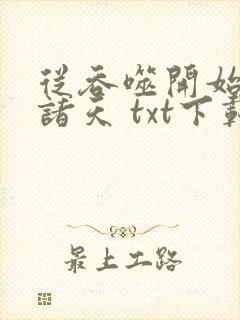 從吞噬開始
諸天 txt下載
最上工路